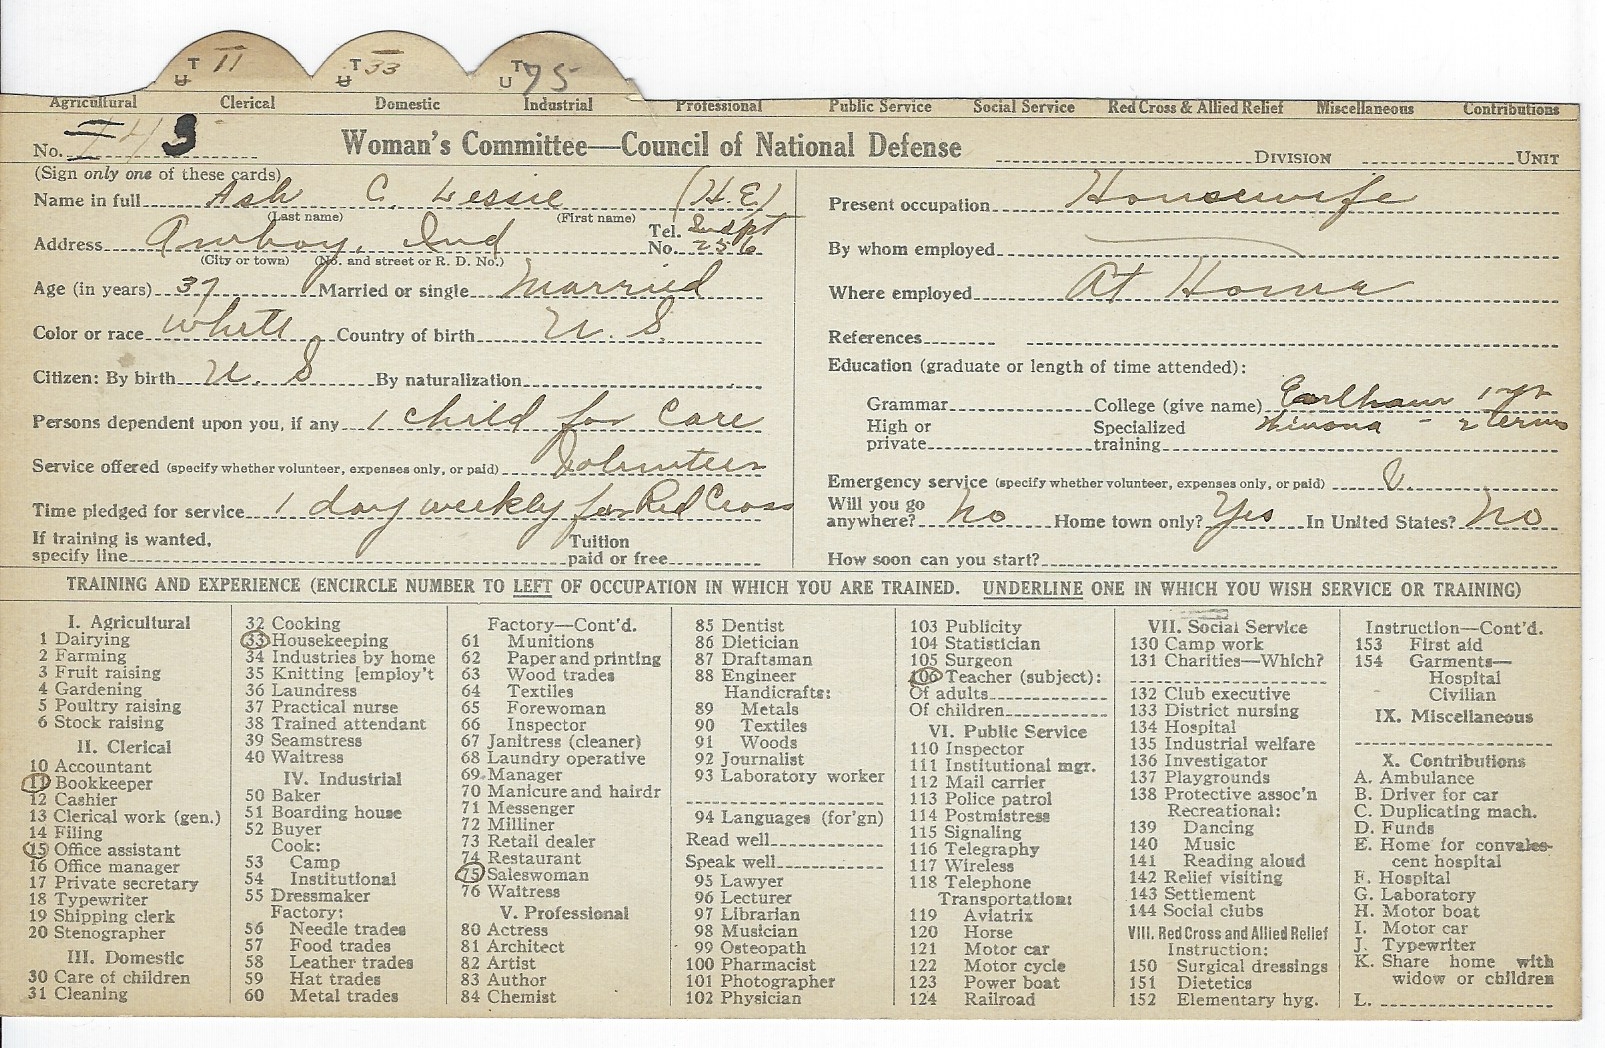 T U 11 T U 33 T U 75
Agricultural Clerical Domestic Industrial Professional Public Service Social Service Red Cross & Allied Relief Miscellaneous Contributions
No. 3
Woman's Committee—Council of National Defense DIVISION UNIT
(Sign only one of these cards)
Name in full Ash C. Lessie (H.E)
(Last name) (First name)
Address Amboy, Ind Tel. No. Indpt 256
(City or town) (No. and street or R. D. No.)
Age (in years) 37 Married or single Married
Color or race White Country of birth U. S.
Citizen: By birth U. S By naturalization
Persons dependent upon you, if any 1 child for care
Service offered (specify whether volunteer, expenses only, or paid) Volunteer
Time pledged for service 1 day weekly for Red Cross
If training is wanted, specify line Tuition paid or free
Present occupation Housewife
By whom employed
Where employed At Home
References
Education (graduate or length of time attended):
Grammar College (give name) Earlham 1 yr
High or private Specialized training Winona - 2 terms
Emergency service (specify whether volunteer, expenses only, or paid) V.
Will you go anywhere? No Home town only? Yes In United States? No
How soon can you start?
TRAINING AND EXPERIENCE (ENCIRCLE NUMBER TO LEFT OF OCCUPATION IN WHICH YOU ARE TRAINED. UNDERLINE ONE IN WHICH YOU WISH SERVICE OR TRAINING)
I. Agricultural
1 Dairying
2 Farming
3 Fruit raising
4 Gardening
5 Poultry raising
6 Stock raising
II. Clerical
10 Accountant
11 Bookkeeper
12 Cashier
13 Clerical work (gen.)
14 Filing
15 Office assistant
16 Office manager
17 Private secretary
18 Typewriter
19 Shipping clerk
20 Stenographer
III. Domestic
30 Care of children
31 Cleaning
32 Cooking
33 Housekeeping
34 Industries by home
35 Knitting [employ't
36 Laundress
37 Practical nurse
38 Trained attendant
39 Seamstress
40 Waitress
IV. Industrial
50 Baker
51 Boarding house
52 Buyer
Cook:
53 Camp
54 Institutional
55 Dressmaker
Factory:
56 Needle trades
57 Food trades
58 Leather trades
59 Hat trades
60 Metal trades
Factory—Cont'd.
61 Munitions
62 Paper and printing
63 Wood trades
64 Textiles
65 Forewoman
66 Inspector
67 Janitress (cleaner)
68 Laundry operative
69 Manager
70 Manicure and hairdr
71 Messenger
72 Milliner
73 Retail dealer
74 Restaurant
75 Saleswoman
76 Waitress
V. Professional
80 Actress
81 Architect
82 Artist
83 Author
84 Chemist
85 Dentist
86 Dietician
87 Draftsman
88 Engineer
Handicrafts:
89 Metals
90 Textiles
91 Woods
92 Journalist
93 Laboratory worker
94 Languages (for'gn)
Read well
Speak well
95 Lawyer
96 Lecturer
97 Librarian
98 Musician
99 Osteopath
100 Pharmacist
101 Photographer
102 Physician
103 Publicity
104 Statistician
105 Surgeon
106 Teacher (subject):
Of adults
Of children
VI. Public Service
110 Inspector
111 Institutional mgr.
112 Mail carrier
113 Police patrol
114 Postmistress
115 Signaling
116 Telegraphy
117 Wireless
118 Telephone
Transportation:
119 Aviatrix
120 Horse
121 Motor car
122 Motor cycle
123 Power boat
124 Railroad
VII. Social Service
130 Camp work
131 Charities—Which?
132 Club executive
133 District nursing
134 Hospital
135 Industrial welfare
136 Investigator
137 Playgrounds
138 Protective assoc'n
Recreational:
139 Dancing
140 Music
141 Reading aloud
142 Relief visiting
143 Settlement
144 Social clubs
VIII. Red Cross and Allied Relief
Instruction:
150 Surgical dressings
151 Dietetics
152 Elementary hyg.
Instruction—Cont'd.
153 First aid
154 Garments—
Hospital
Civilian
IX. Miscellaneous
X. Contributions
A. Ambulance
B. Driver for car
C. Duplicating mach.
D. Funds
E. Home for convales-
cent hospital
F. Hospital
G. Laboratory
H. Motor boat
I. Motor car
J. Typewriter
K. Share home with
widow or children
L.